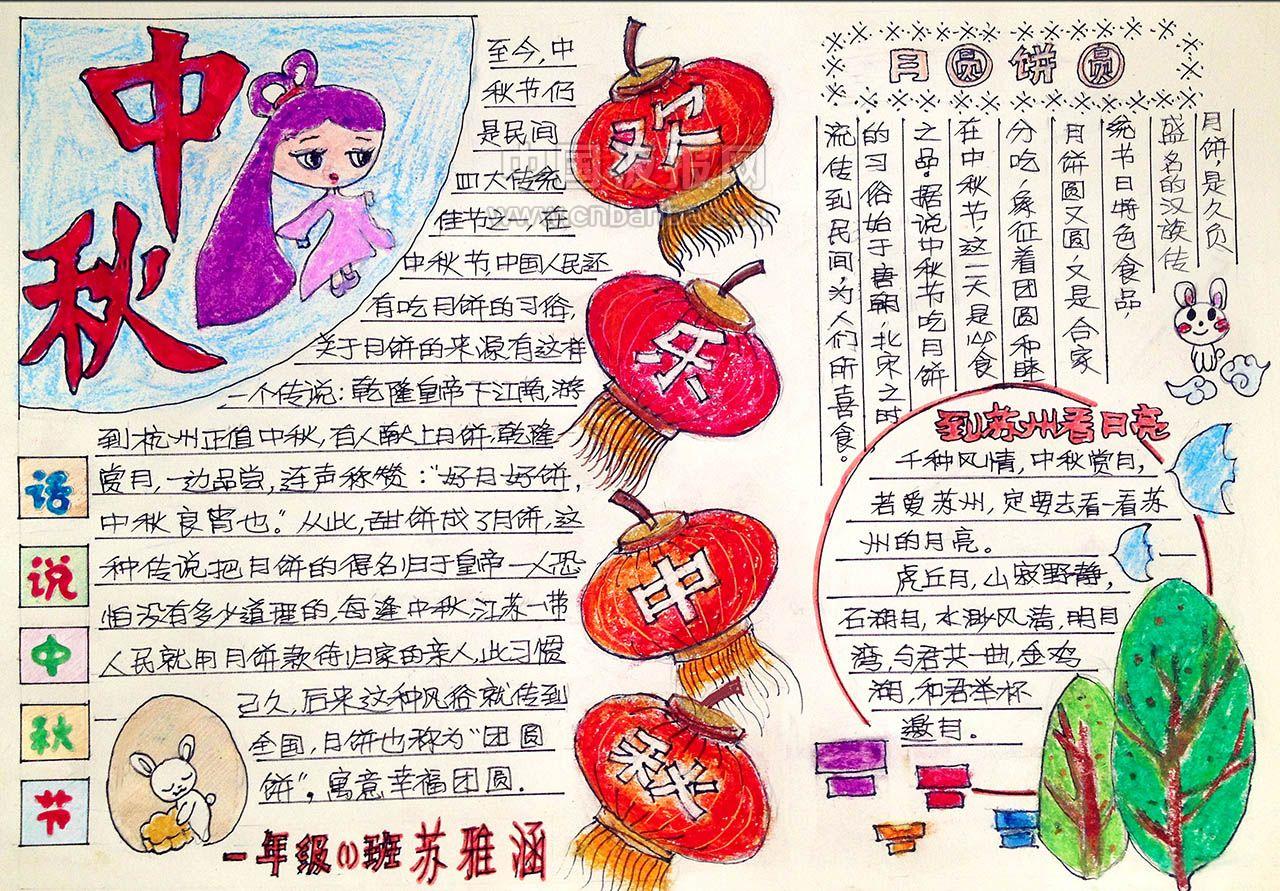 中秋
至今，中
秋节仍
是民间
四大传统
佳节之一，在
中秋节中国人民还
有吃月饼的习俗，
关于月饼的来源有这样
一个传说：乾隆皇帝下江南，游
到杭州正值中秋，有人献上月饼，乾隆
赏月，一边品尝，连声称赞："好月好饼，
中秋良宵也。"从此，甜饼成了月饼，这
种传说把月饼的得名归于皇帝一人恐
怕没有多少道理的，每逢中秋，江苏一带
人民就用月饼款待归家的亲人，此习惯
已久，后来这种风俗就传到
全国，月饼也称为"团圆
饼"，寓意幸福团圆．
话
说
中
秋
节
一年级(1)班苏雅涵
欢
乐
中
秋
月圆饼圆
月饼，是久负
盛名的汉族传
统节日特色食品，
月饼圆又圆，又是合家
分吃，象征着团圆和睦
在中秋节这一天是必食
之品．据说中秋节吃月饼
的习俗始于唐朝，北宋之时
流传到民间，为人们所喜食。
到苏州看月亮
千种风情，中秋赏月，
若爱苏州，定要去看一看苏
州的月亮。
虎丘月，山寂野静，
石湖月，水渺风清，明月
湾，与君共一曲，金鸡
湖，和君举杯
邀月。
www.cnban